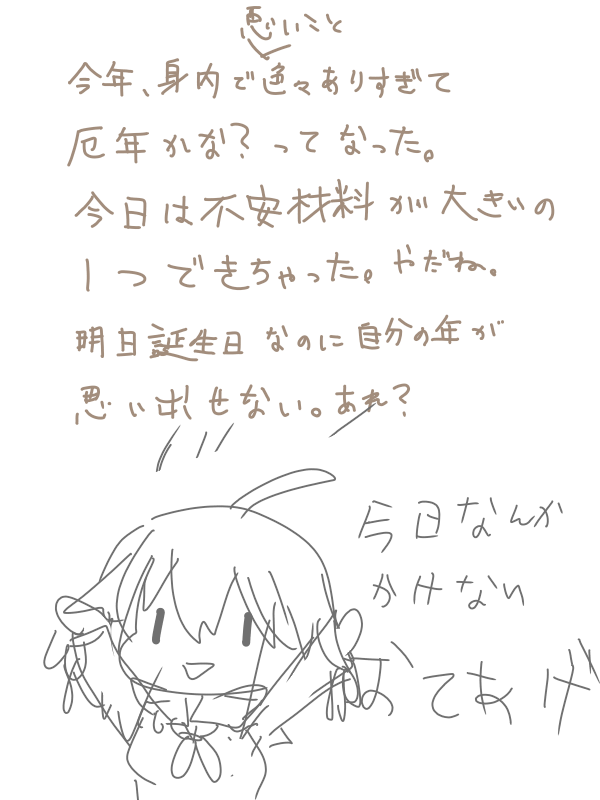 悪いこと
今年、身内で色々ありすぎて
厄年かな?ってなった。
今日は不安材料が大きいの
1つできちゃった。やだね。
明日誕生日なのに自分の年が
思い出せない。あれ?
今日なんか
かけない
おてあげ